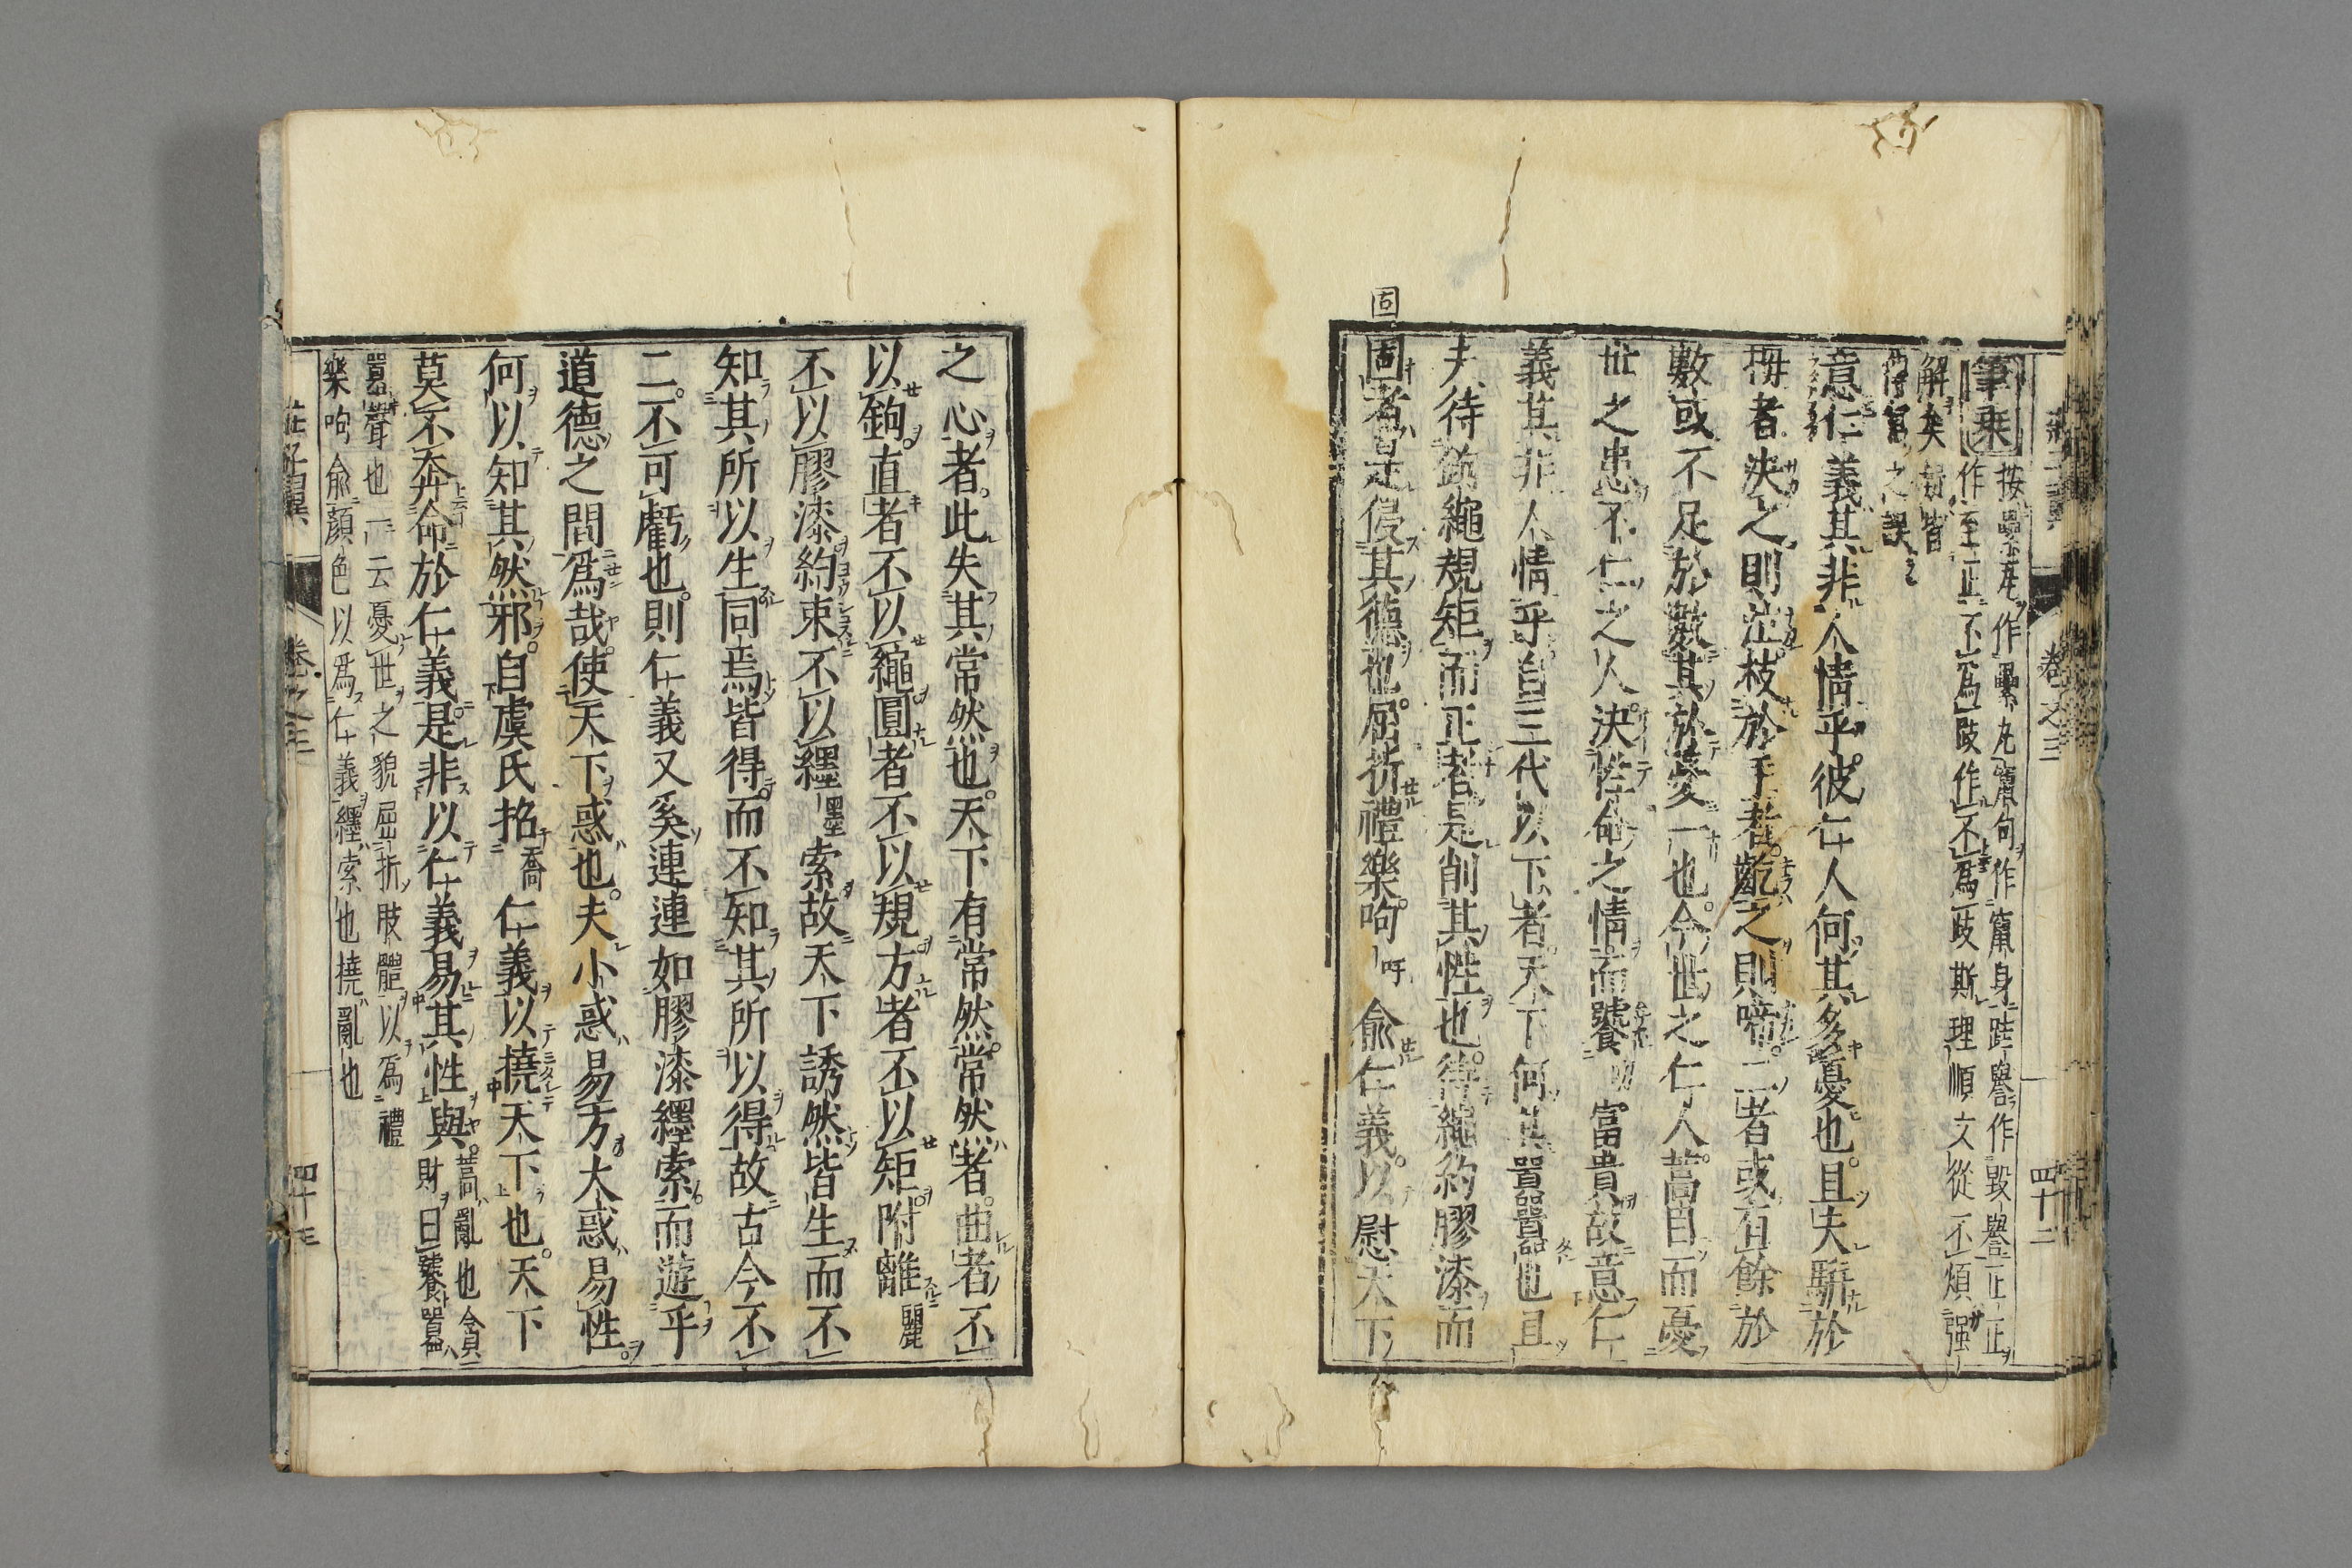 莊子翼 卷之三 四十二
筆乗 按纍瓦作纍丸竄句作竄身跬譽作毀譽正正
作至正不爲跂作不爲歧斯理順文從不煩強
解矣舊皆
傳寫之誤
意仁義其非人情乎彼仁人何其多憂也且夫駢於
拇者決之則泣枝於手者齕之則啼二者或有餘於
數或不足於數其於憂一也今世之仁人蒿目而憂
世之患不仁之人決性命之情而饕富貴故意仁
義其非人情乎自三代以下者天下何其囂囂也且
夫待鉤繩規矩而正者是削其性也待繩約膠漆而
固者是侵其德也屈折禮樂呴吁俞仁義以慰天下
固
之心者此失其常然也天下有常然常然者曲者不
以鉤直者不以繩圓者不以規方者不以矩附離麗
不以膠漆約束不以纆墨索故天下誘然皆生而不
知其所以生同焉皆得而不知其所以得故古今不
二不可虧也則仁義又奚連連如膠漆纆索而遊乎
道德之間爲哉使天下惑也夫小惑易方大惑易性
何以知其然邪自虞氏招喬仁義以撓天下也天下
莫不奔命於仁義是非以仁義易其性與蒿亂也貪
財曰饕囂
囂聲也一云憂世之貌屈折肢體以爲禮
樂呴俞顏色以爲仁義纆索也撓亂也
莊子翼 卷之三 四十三